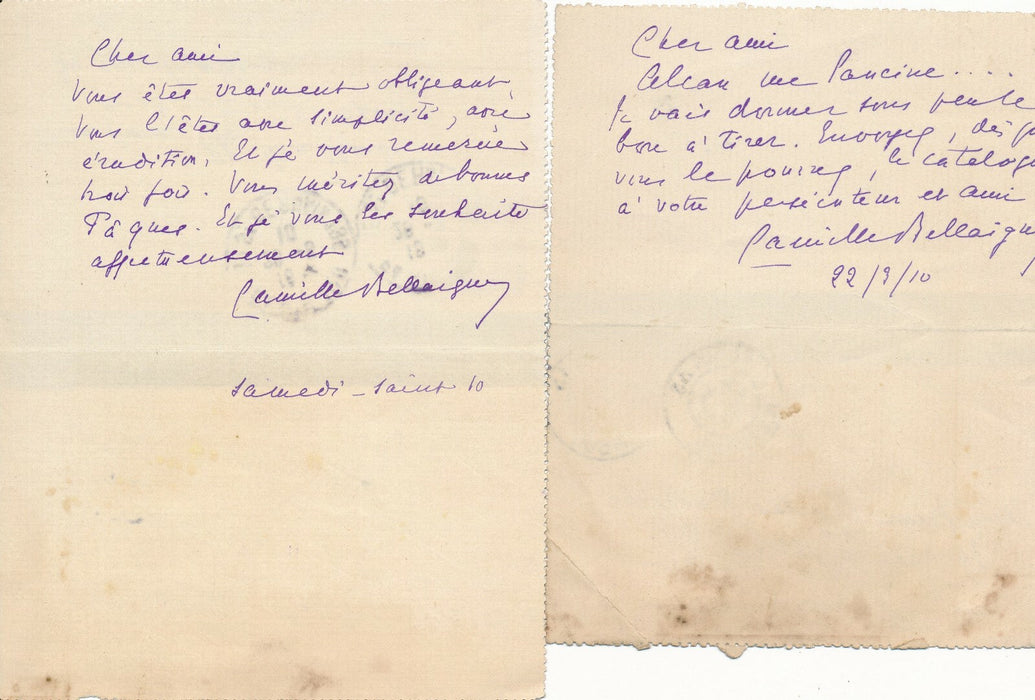 Cher ami
Vous êtes vraiment obligeant,
Vous l'êtes avec simplicité, avec
érudition. Et je vous remercie
trois fois. Vous méritez de bonnes
Pâques. Et je vous les souhaite
affectueusement
Camille Bellaigue
Samedi-Saint 10
Cher ami
Alcan me lancine....
Je vais donner sous peu le
bon à tirer. Envoyez, dès
vous le pourrez, le catalogu
à votre persécuteur et ami
Camille Bellaigu
22/3/10